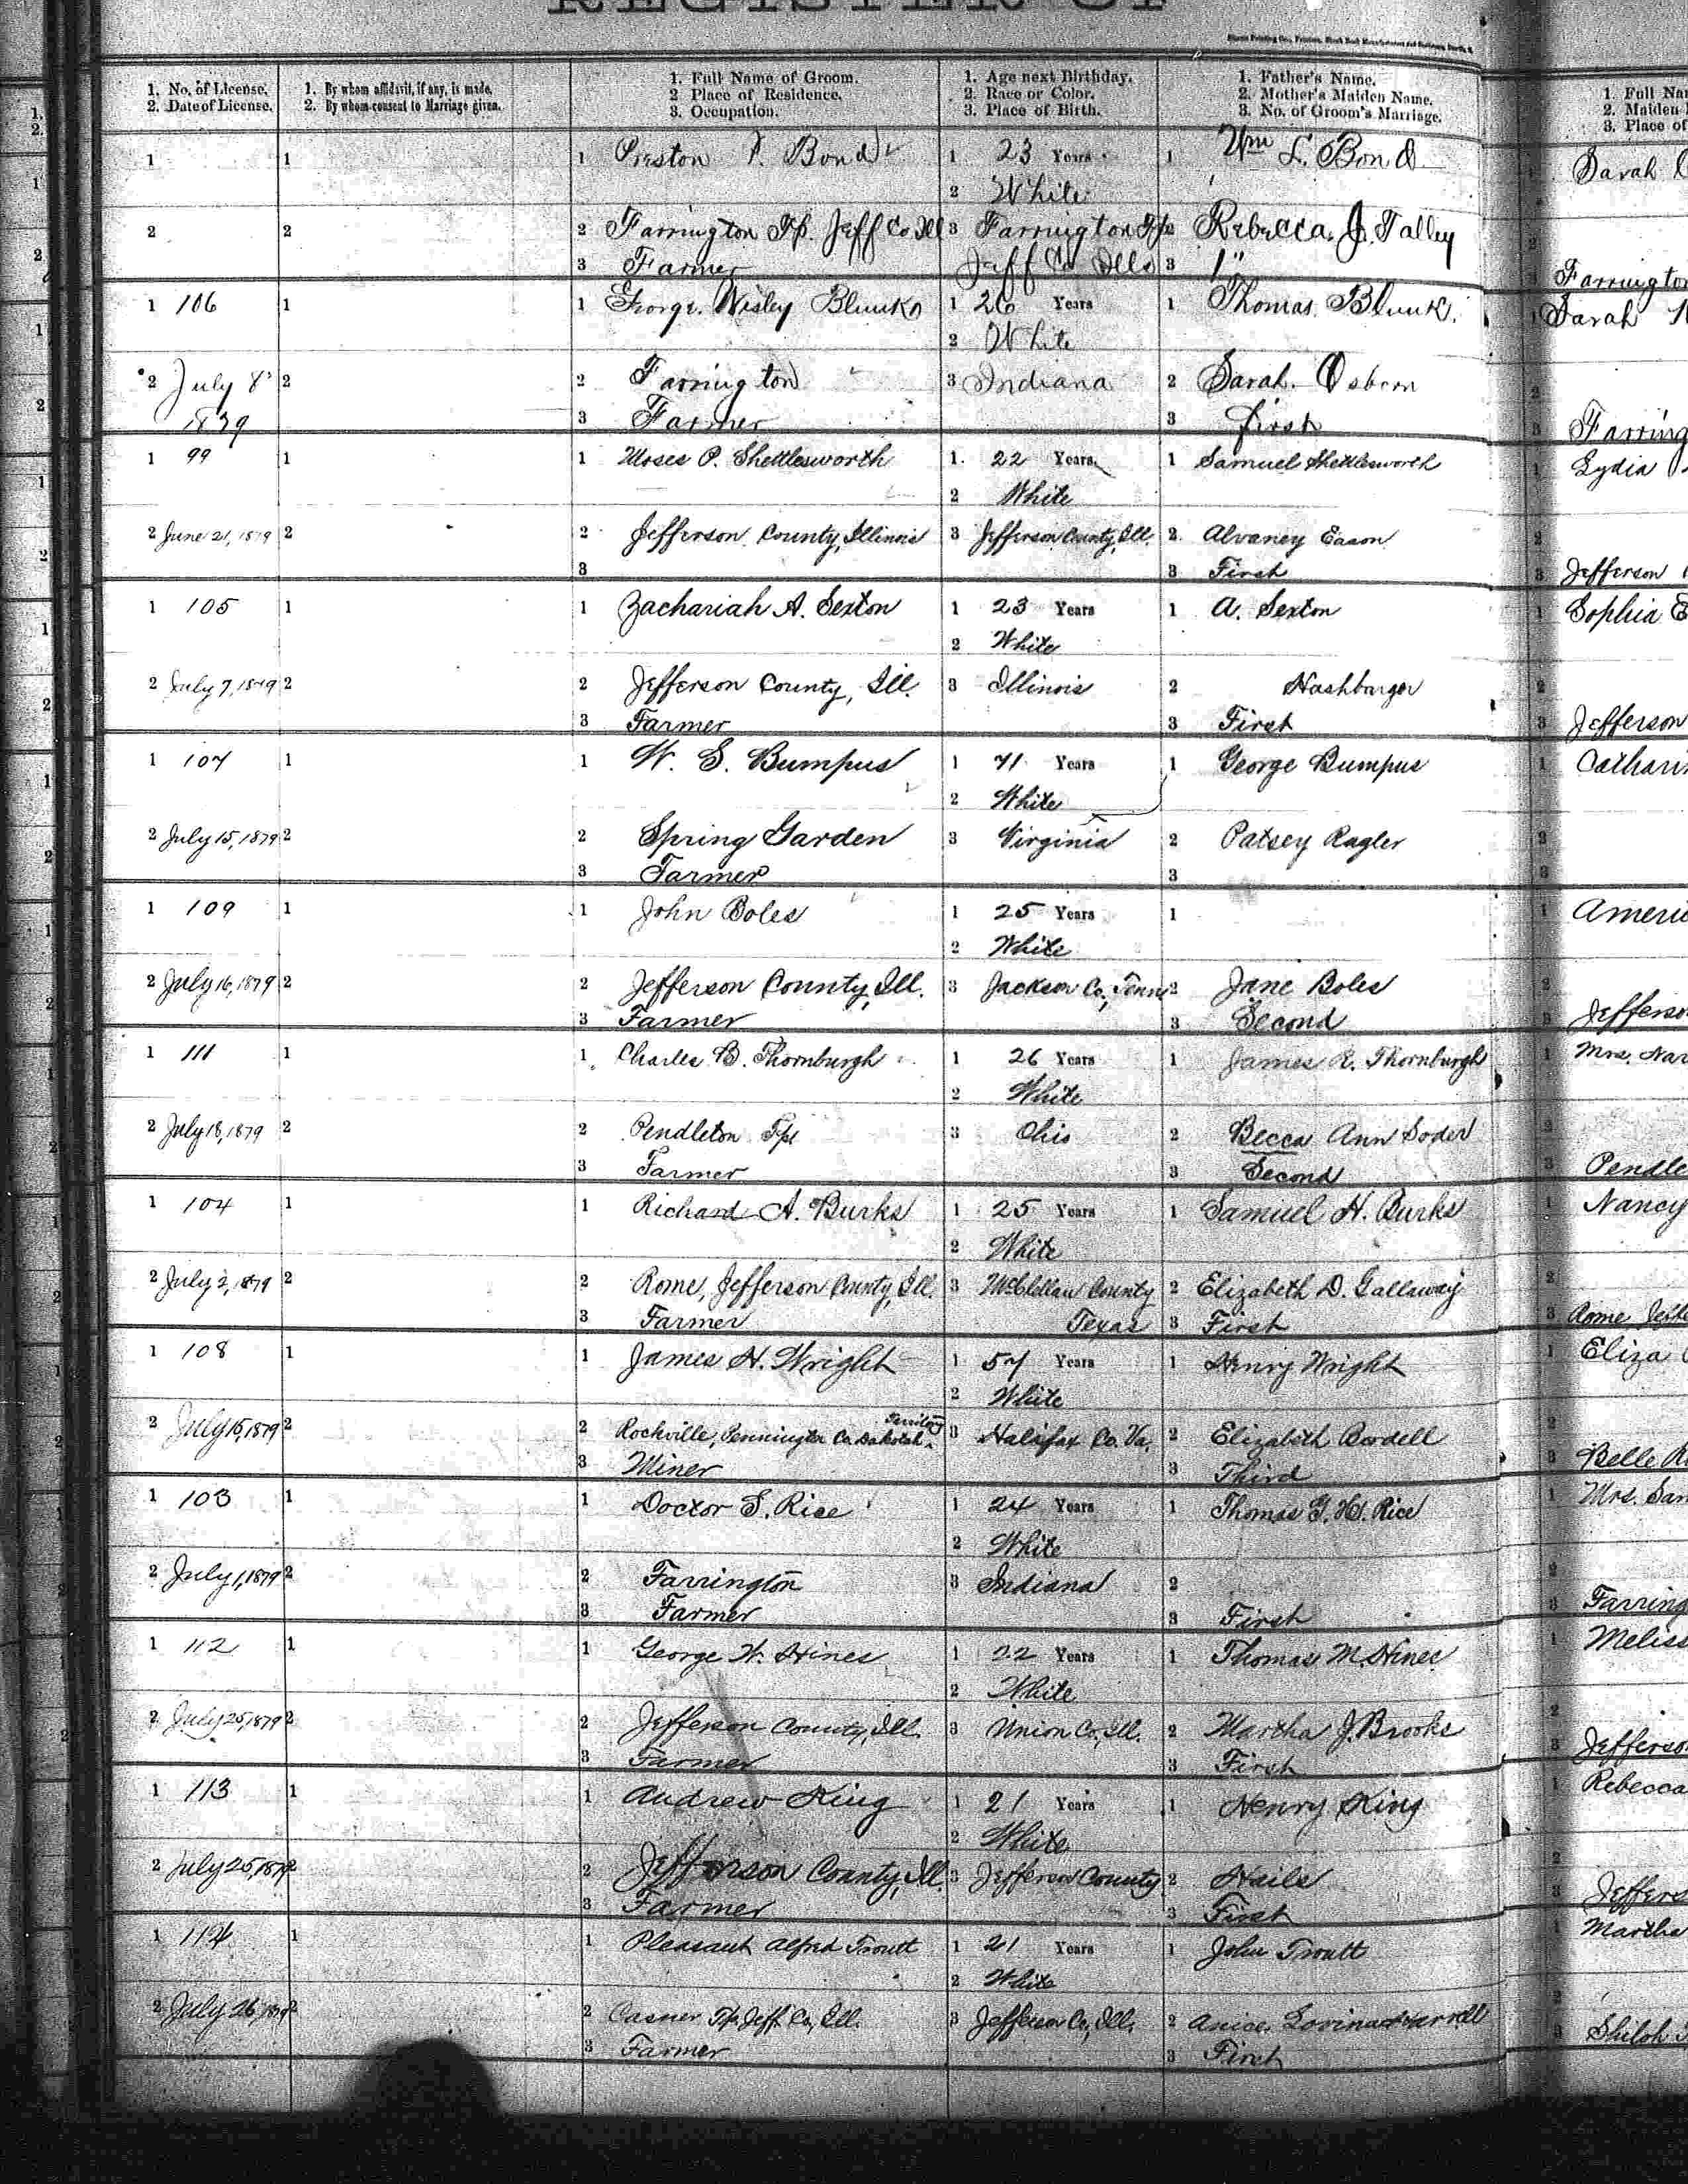 REGISTER OF
1. No. of License. 1. By whom affidavit, if any, is made. 1. Full Name of Groom. 1. Age next Birthday. 1. Father's Name. 1. Full
2. Date of License. 2. By whom consent to Marriage given. 2 Place of Residence. 2. Race or Color. 2. Mother's Maiden Name. 2. Maiden
3. Occupation. 3. Place of Birth. 3. No. of Groom's Marriage. 3. Place of
1 1 1 Preston P. Bond 1 23 Years 1 Wm L. Bond Sarah
2 White
2 2 2 Farrington Tp. Jeff Co Ill 3 Farrington Tp 2 Rebecca J. Talley
3 Farmer Jeff Co Ills 3 1" Farrington
1 106 1 1 George Wisley Blunk 1 26 Years 1 Thomas Blunk. Sarah
2 White
2 July 8 2 2 Farrington 3 Indiana 2 Sarah Osborn
1879 3 Farmer 3 first Farring
1 99 1 1 Moses P. Shettlesworth 1. 22 Years 1 Samuel Shettlesworth 1 Lydia
2 White
2 June 21, 1879 2 2 Jefferson County, Illinois 3 Jefferson County, Ill. 2 Alvaney Eason 2
3 3 First 3 Jefferson
1 105 1 1 Zachariah A. Sexton 1 23 Years 1 A. Sexton 1 Sophia E
2 White
2 July 7, 1879 2 2 Jefferson County, Ill. 3 Illinois 2 Hashbarger 2
3 Farmer 3 First 3 Jefferson
1 107 1 1 W. S. Bumpus 1 71 Years 1 George Bumpus 1 Catharin
2 White
2 July 15, 1879 2 2 Spring Garden 3 Virginia 2 Patsey Ragler 2
3 Farmer 3 3
1 109 1 1 John Boles 1 25 Years 1 1 Ameri
2 White
2 July 16, 1879 2 2 Jefferson County, Ill. 3 Jackson Co, Tenn 2 Jane Boles 2
3 Farmer 3 Second 3 Jefferso
1 111 1 1 Charles B. Thornburgh 1 26 Years 1 James R. Thornburgh 1 Mrs. Nar
2 White
2 July 18, 1879 2 2 Pendleton Tp 3 Ohio 2 Becca Ann Soder 2
3 Farmer 3 Second 3 Pendle
1 104 1 1 Richard A. Burks 1 25 Years 1 Samuel H. Burks 1 Nancy
2 White
2 July 2, 1879 2 2 Rome, Jefferson County, Ill. 3 McClellan County 2 Elizabeth D. Gallaway 2
3 Farmer Texas 3 First 3 Rome
1 108 1 1 James H. Wright 1 57 Years 1 Henry Wright 1 Eliza
2 White
Territory
2 July 15, 1879 2 2 Rockville, Pennington Co. Dakotah 3 Halifax Co. Va. 2 Elizabeth Bordell 2
3 Miner 3 Third 3 Belle R
1 103 1 1 Doctor S. Rice 1 24 Years 1 Thomas G. H. Rice 1 Mrs. Sar
2 White
2 July 1, 1879 2 2 Farrington 3 Indiana 2 2
3 Farmer 3 First 3 Farring
1 112 1 1 George W. Hines 1 22 Years 1 Thomas M. Hines 1 Meliss
2 White
2 July 25, 1879 2 2 Jefferson County, Ill. 3 Union Co, Ill. 2 Martha J. Brooks 2
3 Farmer 3 First 3 Jefferso
1 113 1 1 Andrew King 1 21 Years 1 Henry King 1 Rebecca
2 White
2 July 25, 1879 2 2 Jefferson County, Ill. 3 Jefferson County 2 Haile 2
3 Farmer 3 First 3 Jeffers
1 114 1 1 Pleasant Alfred Troutt 1 21 Years 1 John Troutt 1 Martha
2 White
2 July 26, 1879 2 2 Casner Tp. Jeff. Co, Ill. 3 Jefferson Co, Ill. 2 Anice Lovina Harrell 2
3 Farmer 3 First 3 Shiloh